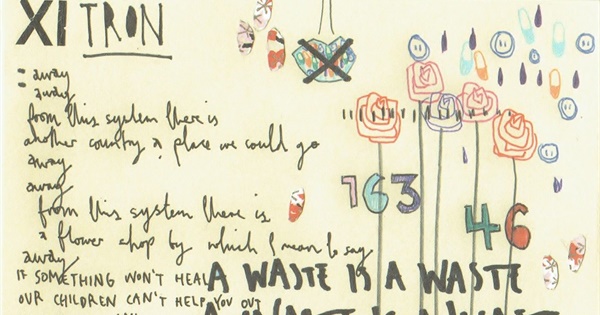 XI TRON
: away
away
from this system there is
another country a place we could go
away
away
from this system there is
a flower shop by which I mean to say
away
163
46
IF SOMETHING WON'T HEAL
OUR CHILDREN CAN'T HELP YOU OUT
A WASTE IS A WASTE
A WASTE IS A WASTE